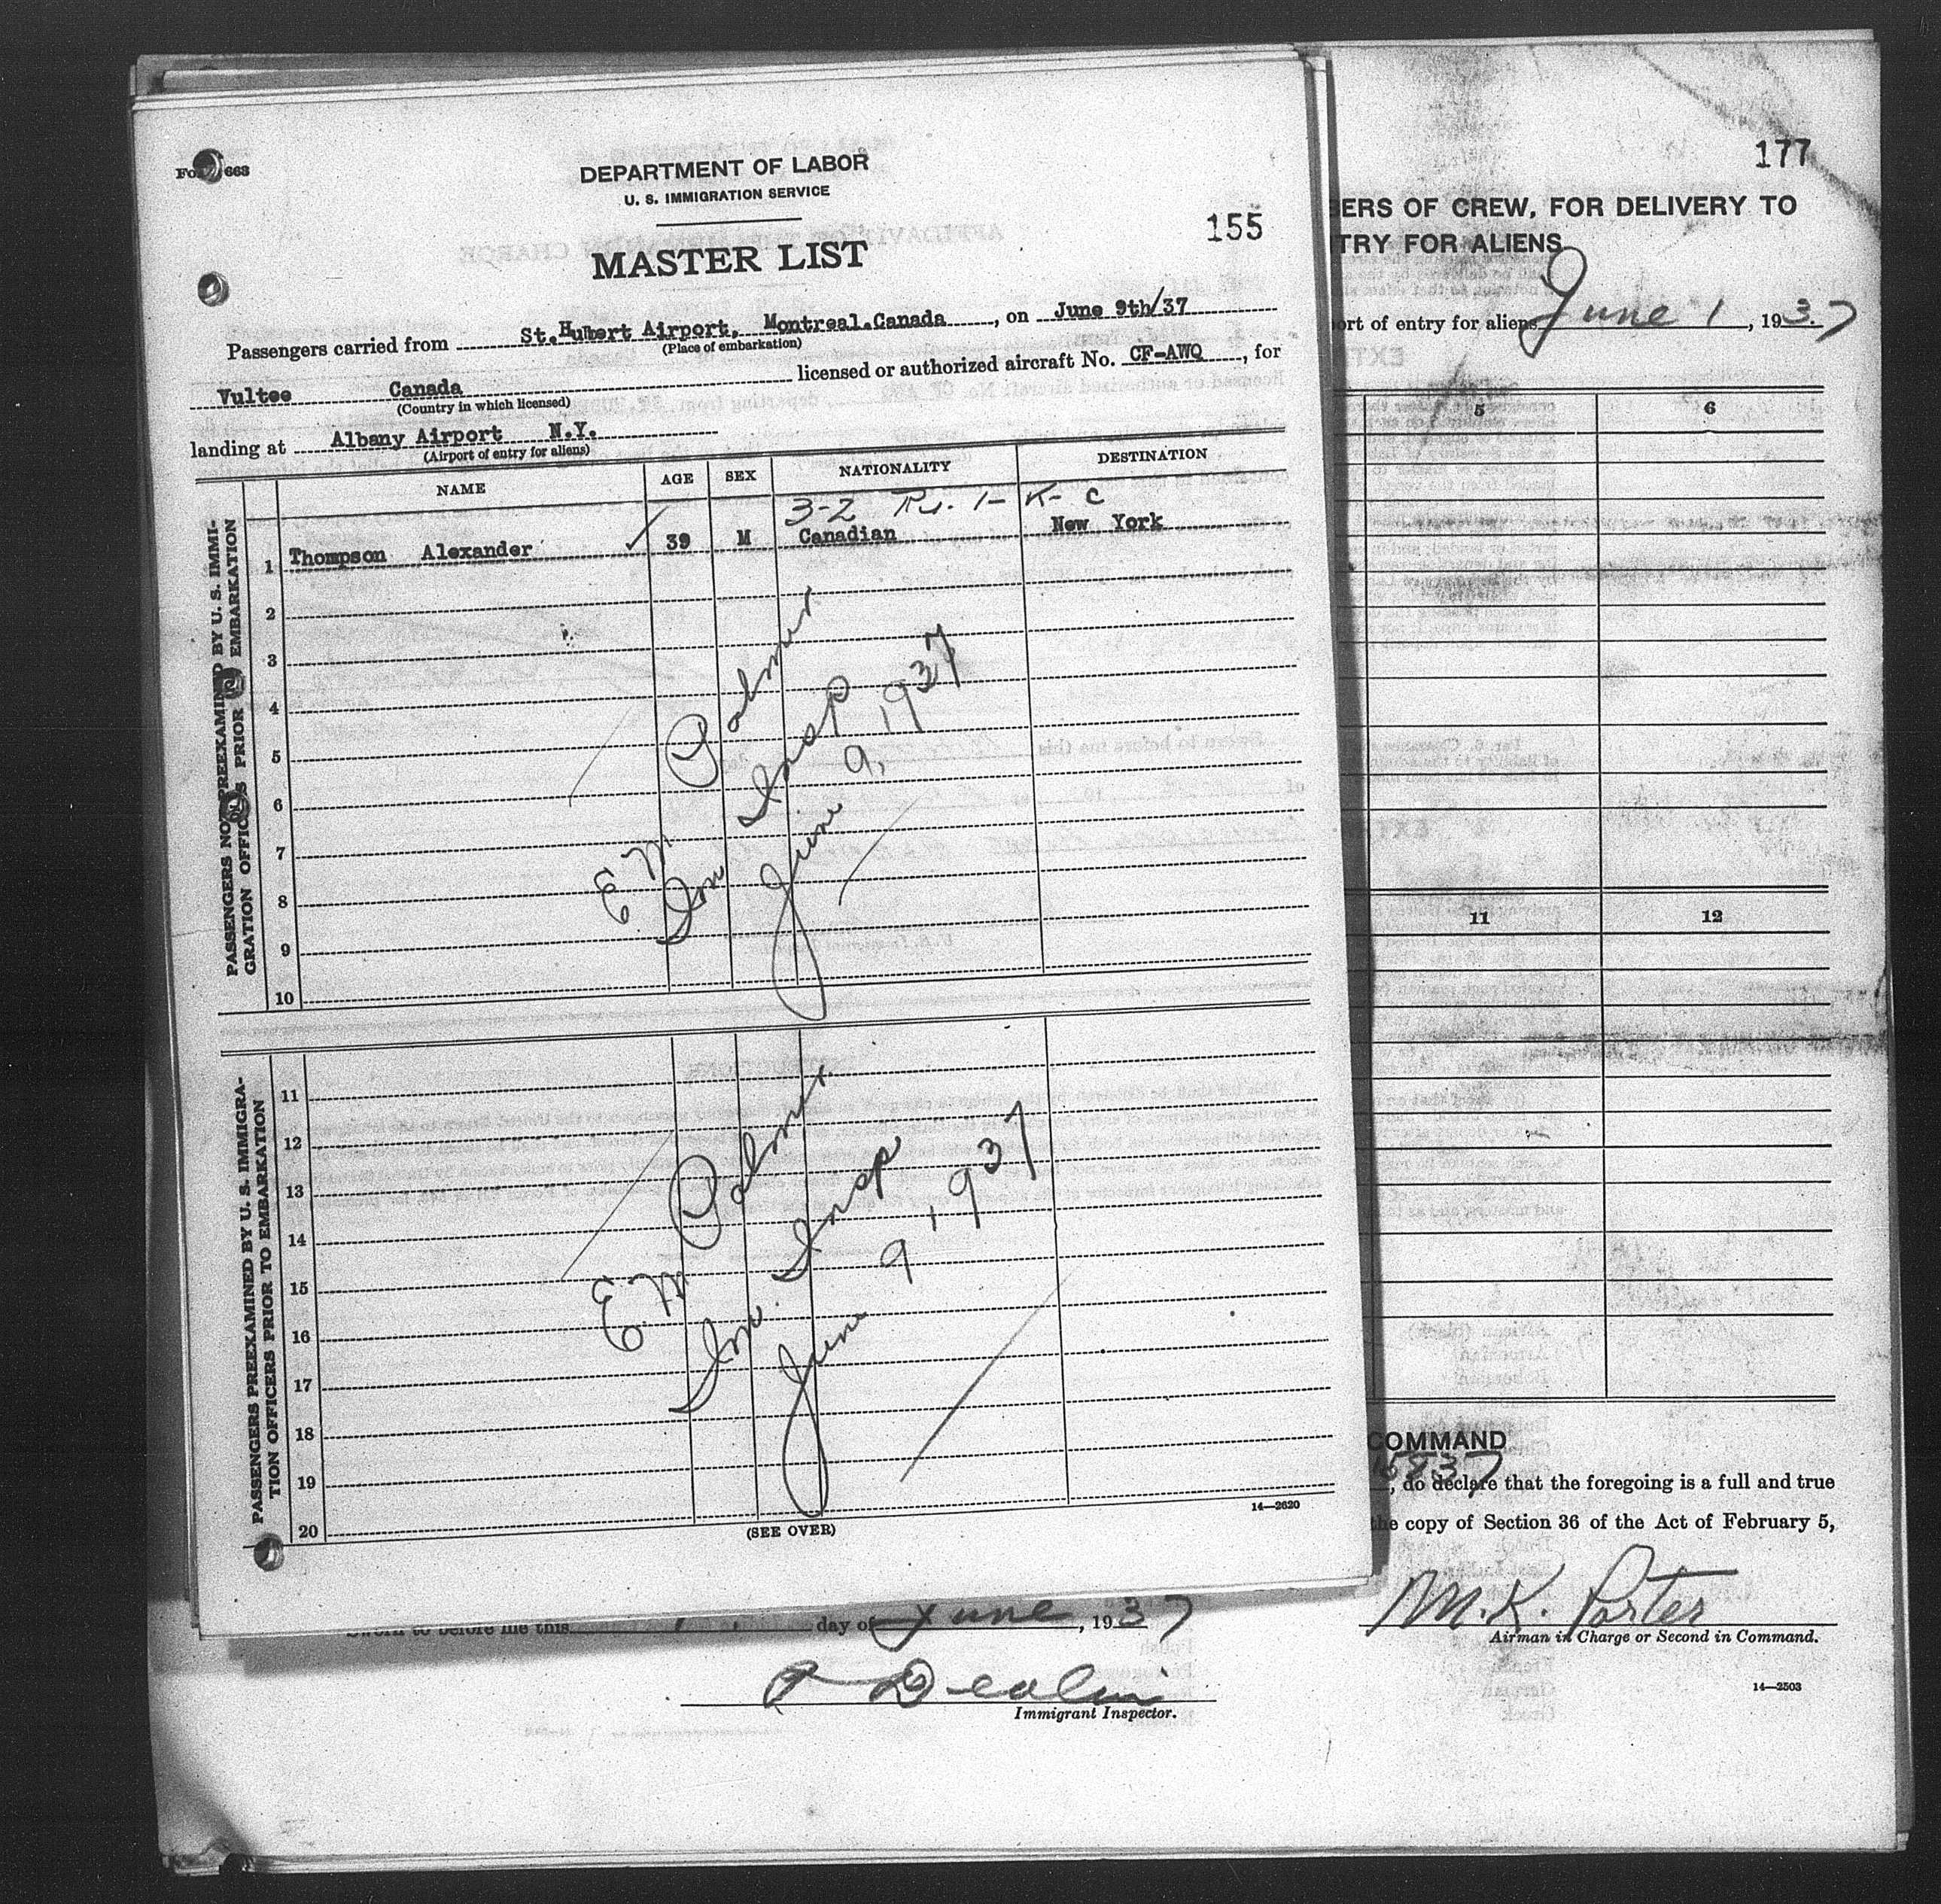 Fo 663
DEPARTMENT OF LABOR
U. S. IMMIGRATION SERVICE
155
MASTER LIST
Passengers carried from St.Hubert Airport, Montreal.Canada, on June 9th/37
(Place of embarkation)
Vultee Canada licensed or authorized aircraft No. CF-AWQ, for
(Country in which licensed)
landing at Albany Airport N.Y.
(Airport of entry for aliens)
NAME AGE SEX NATIONALITY DESTINATION
3-2 1- K- C
1 Thompson Alexander ✓ 39 M Canadian New York
2
3
4
5
6
7
8
9
10
PASSENGERS NOT PREEXAMINED BY U. S. IMMI-
GRATION OFFICERS PRIOR EMBARKATION
E M Palmer
Im Insp
June 9, 1937
11
12
13
14
15
16
17
18
19
20
PASSENGERS PREEXAMINED BY U. S. IMMIGRA-
TION OFFICERS PRIOR TO EMBARKATION
E M Palmer
Im. Insp
June 9, 1937
14—2620
(SEE OVER)
177
BERS OF CREW, FOR DELIVERY TO
TRY FOR ALIENS
ort of entry for aliens June 1, 1937
5 6
11 12
COMMAND
, do declare that the foregoing is a full and true
the copy of Section 36 of the Act of February 5,
M.K. Porter
Airman in Charge or Second in Command.
14—2503
Sworn to before me this 1 day of June, 1937
Immigrant Inspector.